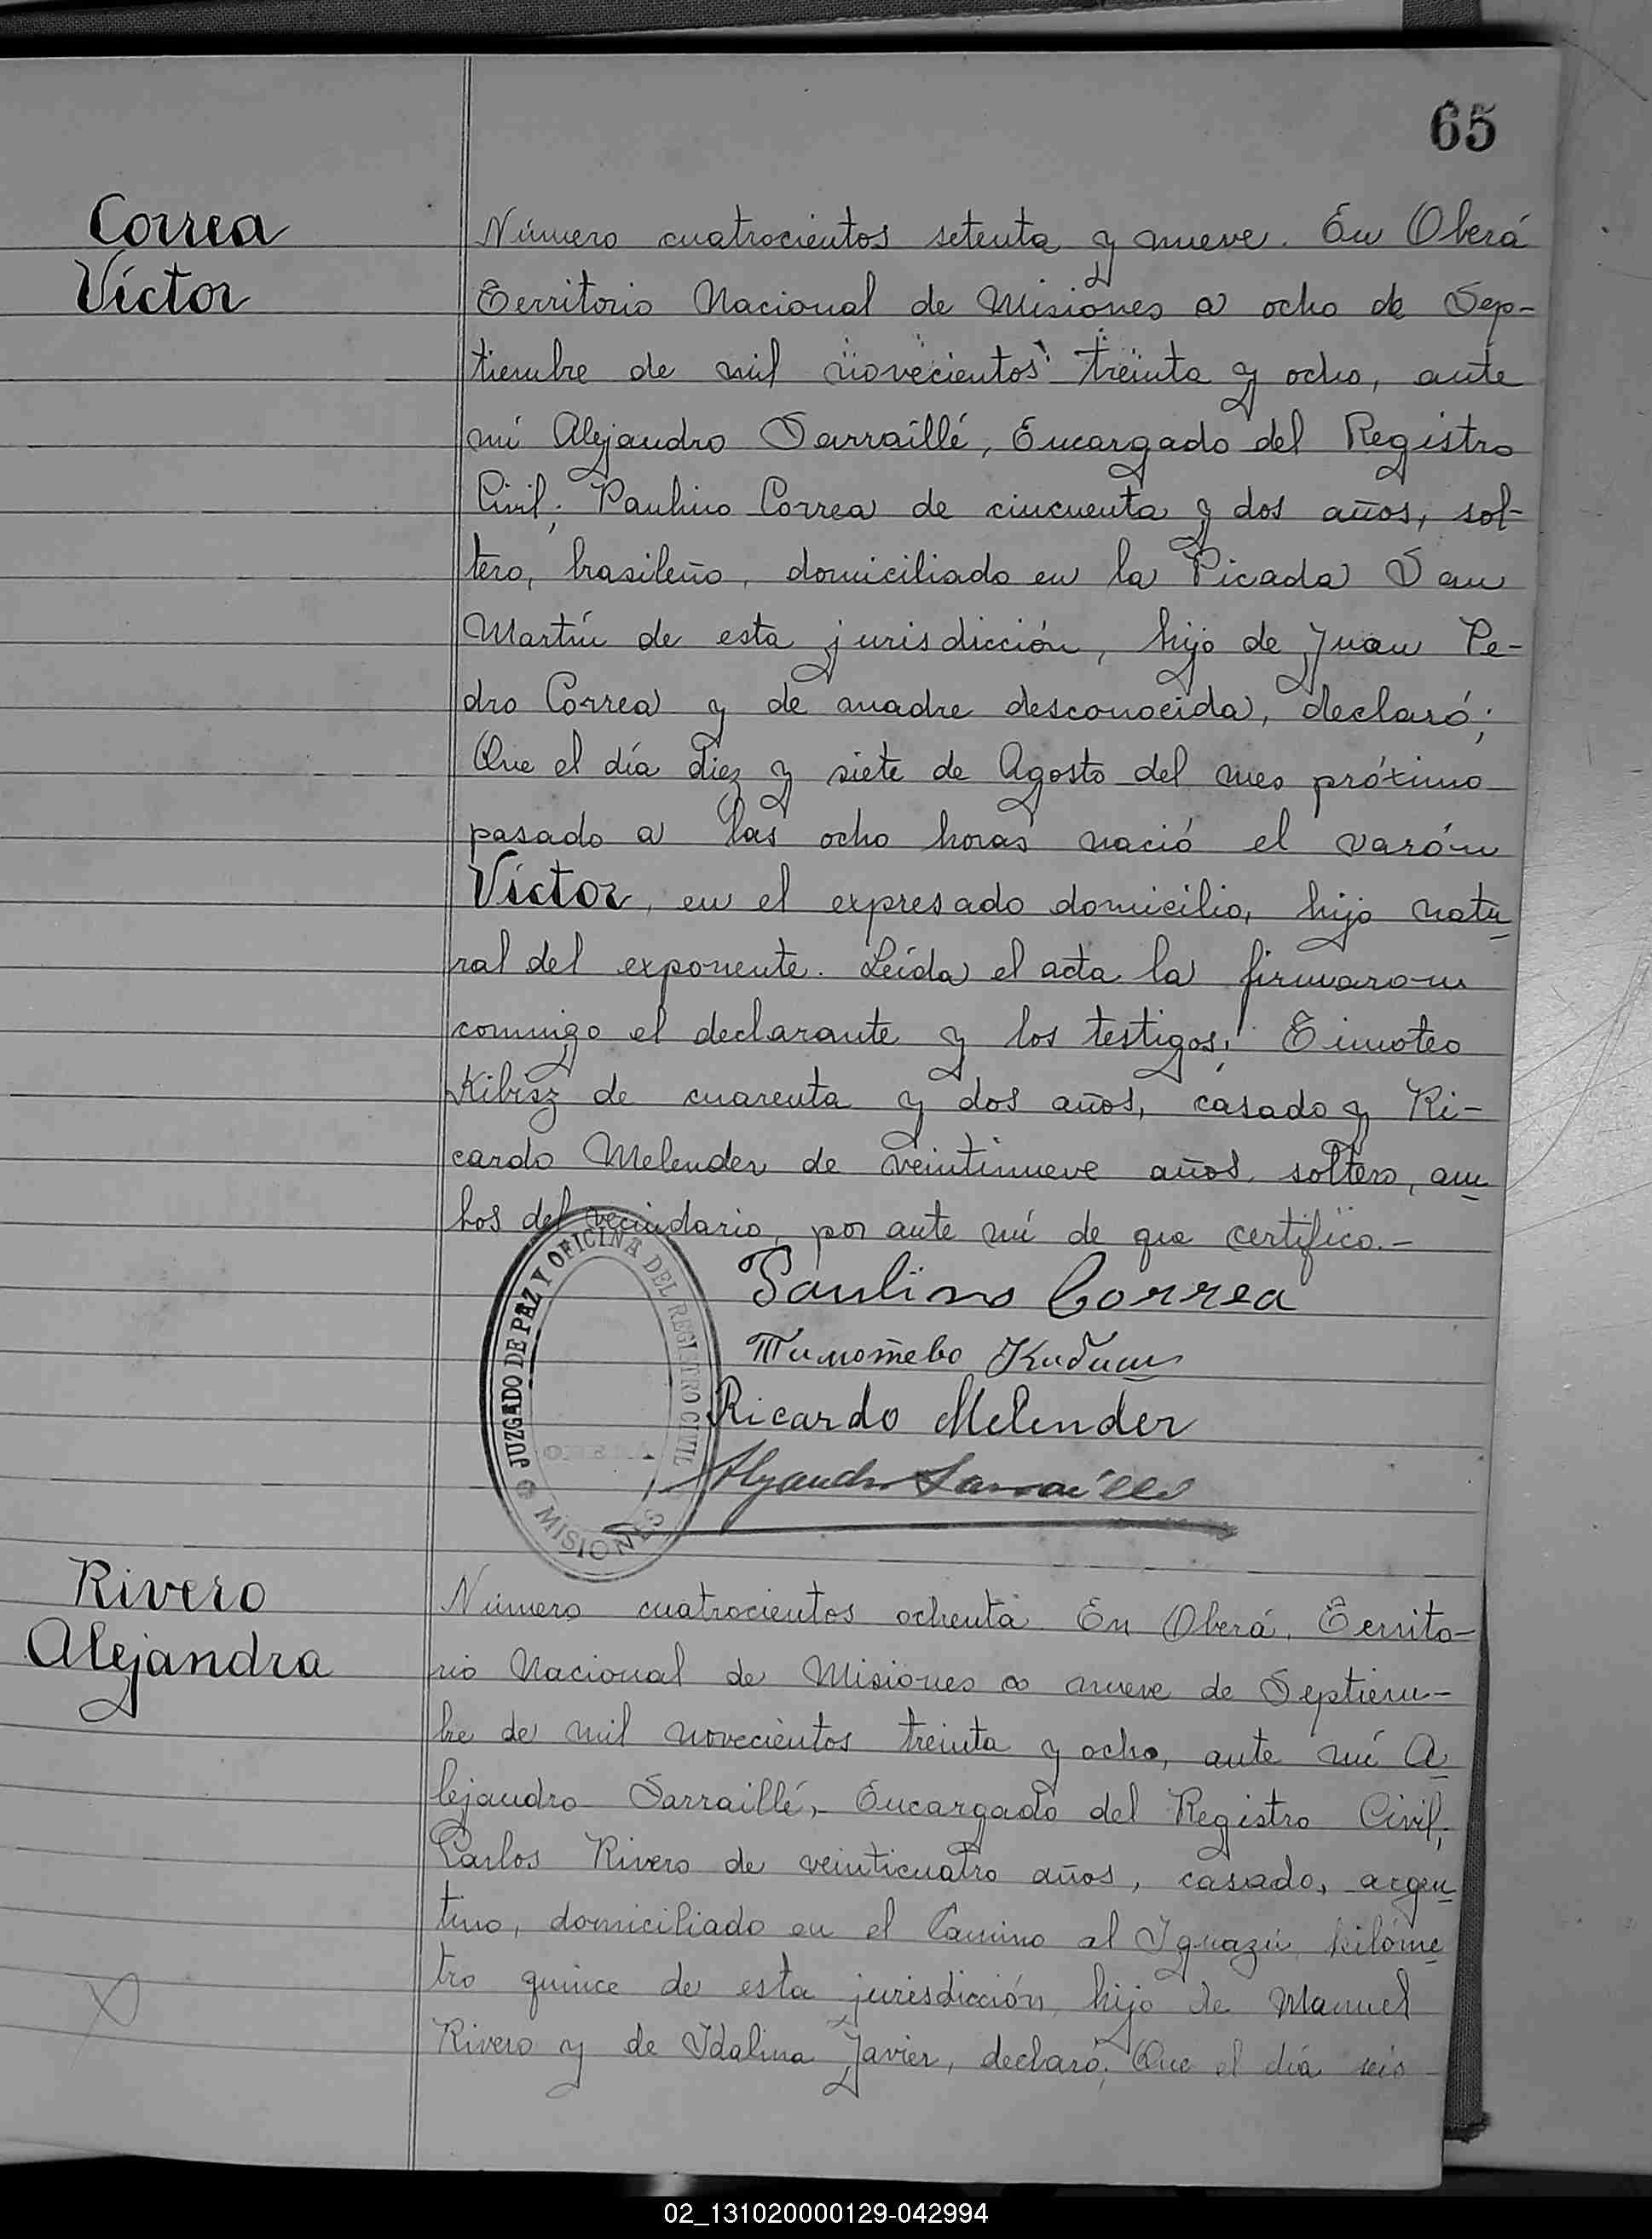 65
Correa
Víctor
Número cuatrocientos setenta y nueve. En Oberá
Territorio Nacional de Misiones a ocho de Sep-
tiembre de mil novecientos treinta y ocho, ante
mí Alejandro Sarraillé, Encargado del Registro
Civil; Paulino Correa de cincuenta y dos años, sol-
tero, brasileño, domiciliado en la Picada San
Martín de esta jurisdicción, hijo de Juan Pe-
dro Correa y de madre desconocida, declaró;
Que el día diez y siete de Agosto del mes próximo
pasado a las ocho horas nació el varón
Víctor, en el expresado domicilio, hijo natu
ral del exponente. Leída el acta la firmaron
conmigo el declarante y los testigos; Timoteo
Kibisz de cuarenta y dos años, casado y Ri-
cardo Melender de veintinueve años, soltero, am
bos del vecindario, por ante mí de que certifico.-
Paulino Correa
Ricardo Melender
Alejandro Sarraillé
JUZGADO DE PAZ Y OFICINA DEL REGISTRO CIVIL
MISIONES
Rivero
Alejandra
Número cuatrocientos ochenta. En Oberá, Territo-
rio Nacional de Misiones a nueve de Septiem-
bre de mil novecientos treinta y ocho, ante mí A
lejandro Sarraillé, Encargado del Registro Civil;
Carlos Rivero de veinticuatro años, casado, argen
tino, domiciliado en el Camino al Iguazú kilóme
tro quince de esta jurisdicción, hijo de Manuel
Rivero y de Idalina Javier, declaró; Que el día seis
02_131020000129-042994